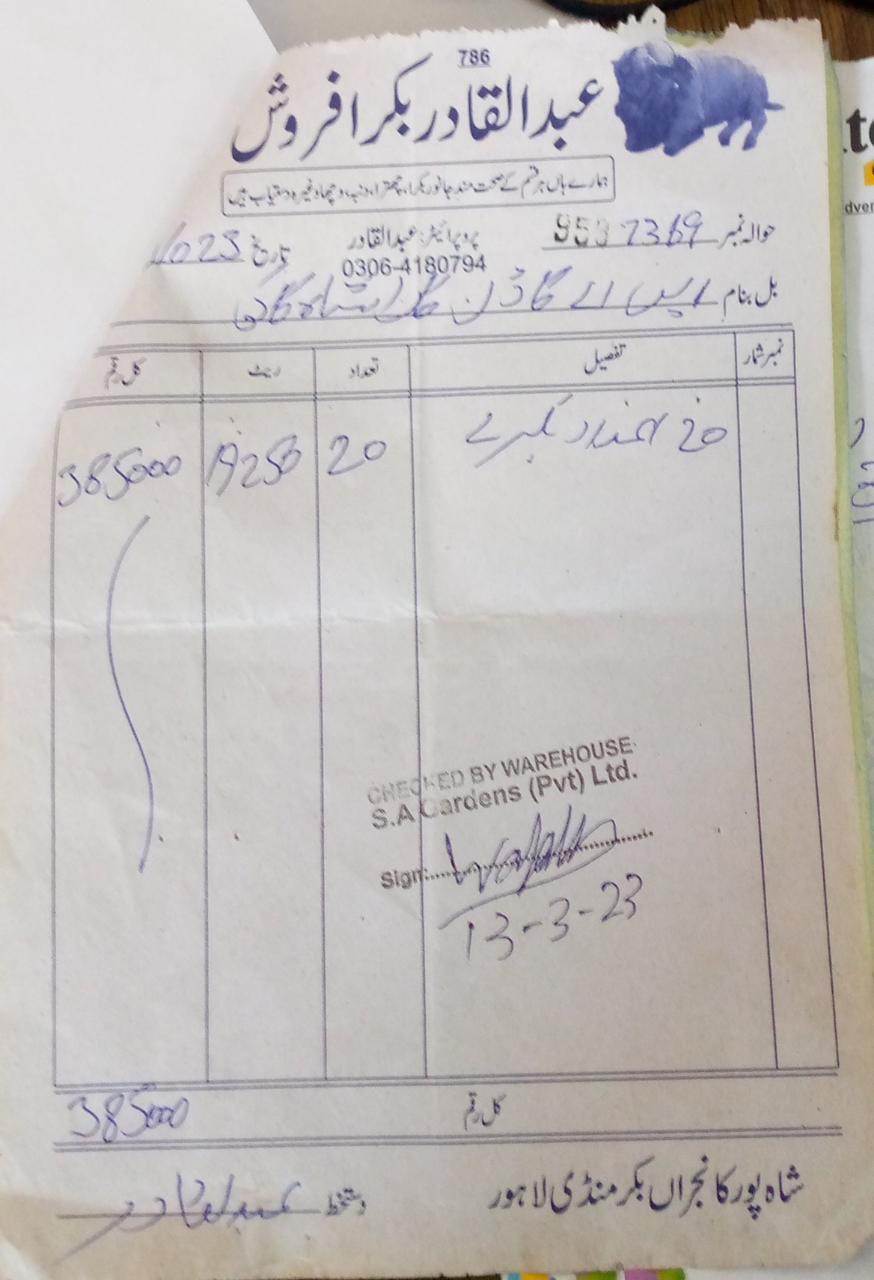 786
عبدالقادر بکرا فروش
ہمارے ہاں ہر قسم کے صحت مند جانور بکرا، چھترا، دنبہ، وچھا وغیرہ دستیاب ہیں
حوالہ نمبر 7369
پروپرائیٹر: عبدالقادر
تاریخ 023
0306-4180794
بل بنام ایس اے گارڈن
نمبر شمار تفصیل تعداد ریٹ کل رقم
20 عدد بکرے 20 19250 385000
CHECKED BY WAREHOUSE
S.A Gardens (Pvt) Ltd.
Sign:
13-3-23
کل رقم 385000
شاہ پور کانجراں بکر منڈی لاہور
دستخط عبدالقادر
te
dver